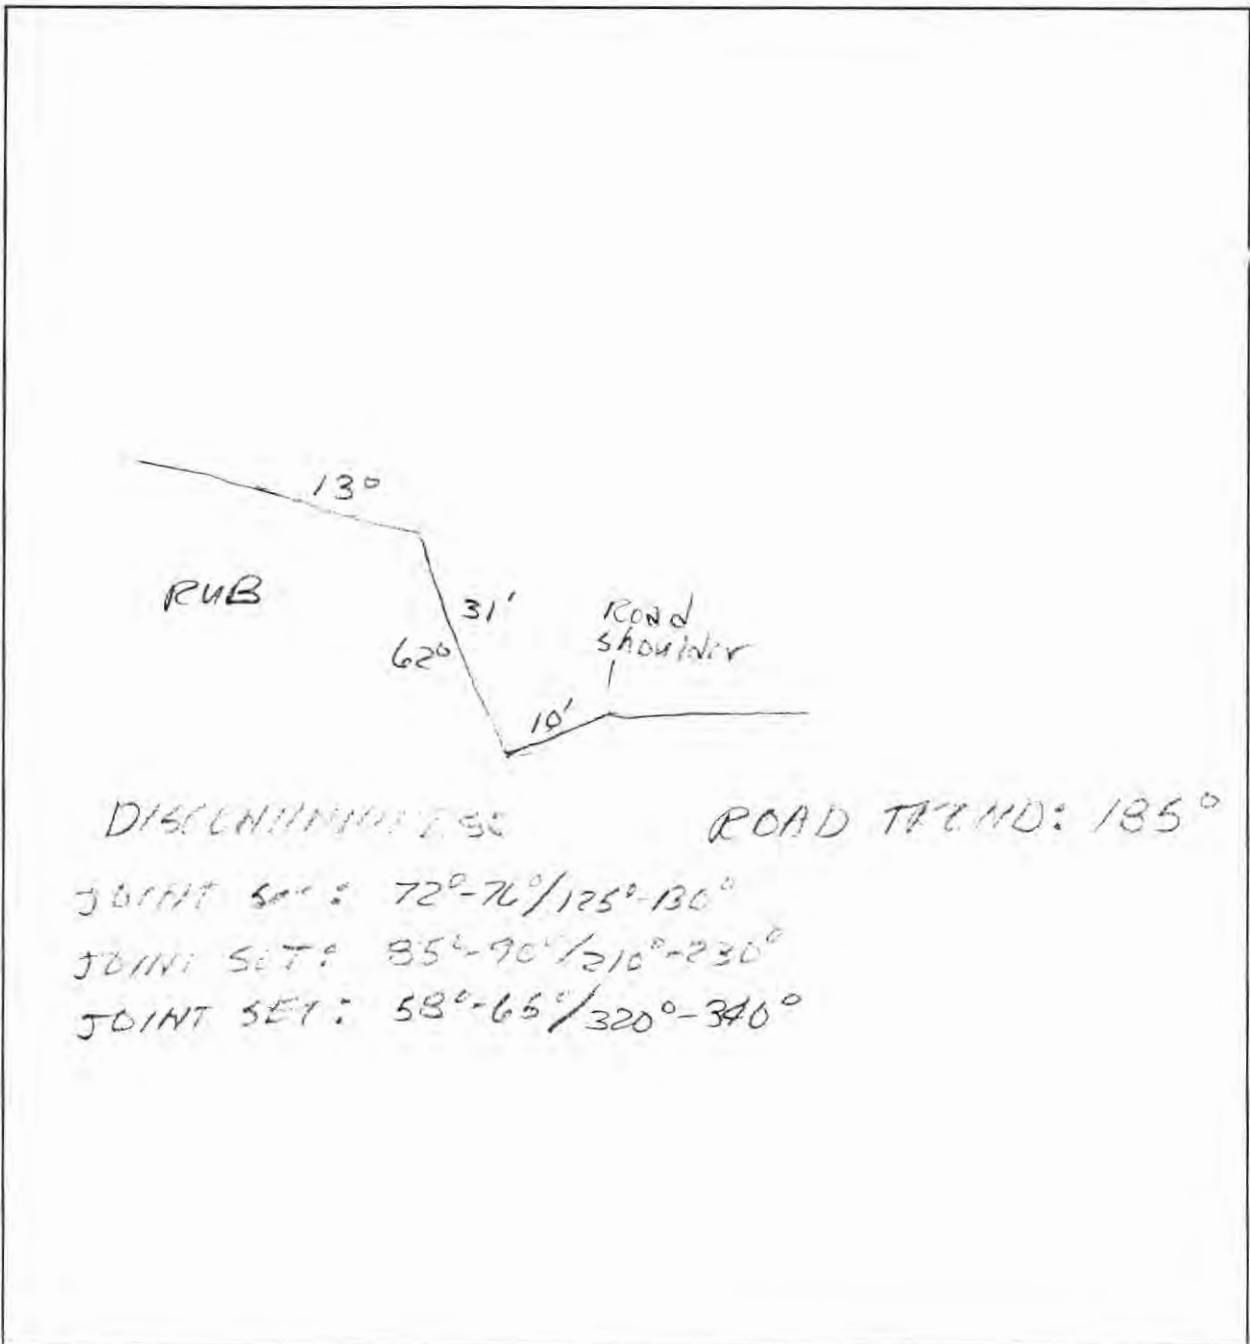 13°
RUB
31'
Road
shoulder
62°
10'
ROAD TREND: 185°
JOINT SET: 72°-76°/125°-130°
JOINT SET: 85°-90°/210°-230°
JOINT SET: 58°-65°/320°-340°